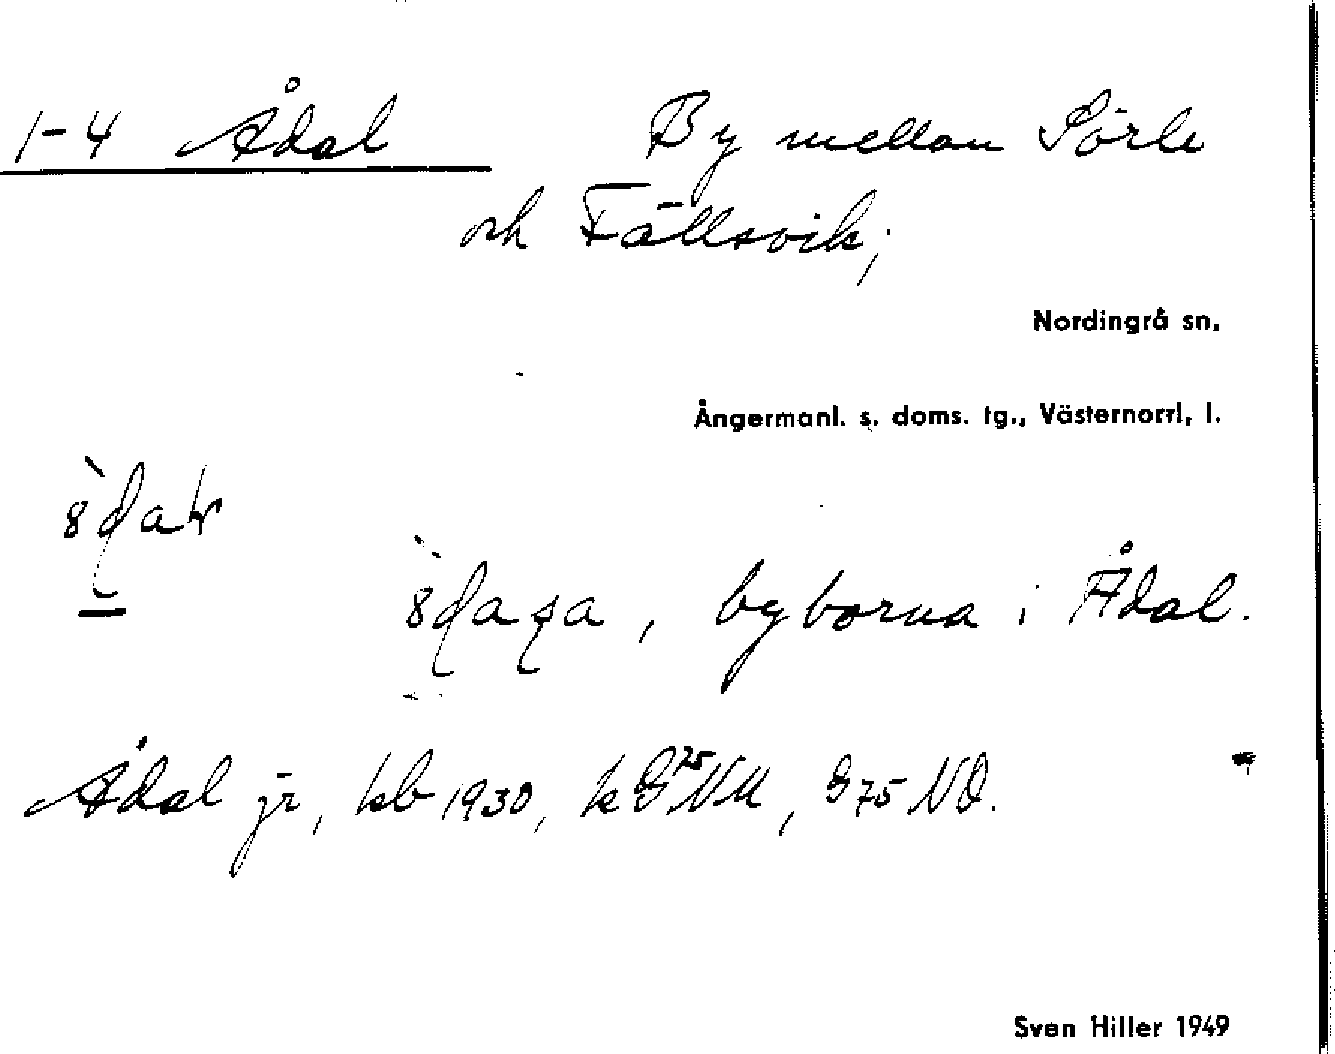 1-4 Ådal By mellan Sörle
och Fällsvik;
Nordingrå sn.
Ångermanl. s. doms. tg., Västernorrl. l.
, byborna i Ådal.
Ådal jr, kb 1930, 75 NO.
Sven Hiller 1949